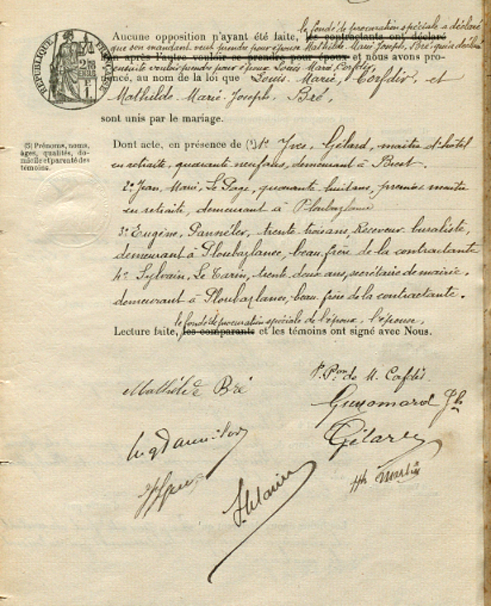 RÉPUBLIQUE FRANÇAISE
Aucune opposition n'ayant été faite, les contractants ont déclaré
le fondé de procuration spéciale a déclaré
que son mandant veut prendre pour épouse Mathilde Marie Joseph, Bré qui a déclaré
l'un après l'autre vouloir se prendre pour époux et nous avons pro-
ensuite vouloir prendre pour époux Louis Marie, Corfdir,
noncé, au nom de la loi que Louis Marie, Corfdir, et
Mathilde-Marie-Joseph, Bré
sont unis par le mariage.
(5) Prénoms, noms,
âges, qualités, do-
micile et parenté des
témoins.
Dont acte, en présence de (5) 1° Yves, Gélard, maître d'hôtel
en retraite, quarante neuf ans, demeurant à Brest.
2° Jean Marie, Le Page, quarante huit ans, premier maître
en retraite, demeurant à Ploubazlanec
3° Eugène, Pannéler, trente trois ans, Receveur buraliste,
demeurant à Ploubazlanec, beau-frère de la contractante
4° Sylvain, Le Tarin, trente deux ans, secrétaire de mairie,
demeurant à Ploubazlanec, beau-frère de la contractante.
le fondé de procuration spéciale de l'époux, l'épouse
Lecture faite, les comparants et les témoins ont signé avec Nous.
Mathilde Bré
P. Pon de M. Cofdir
Guyomard
Gélard